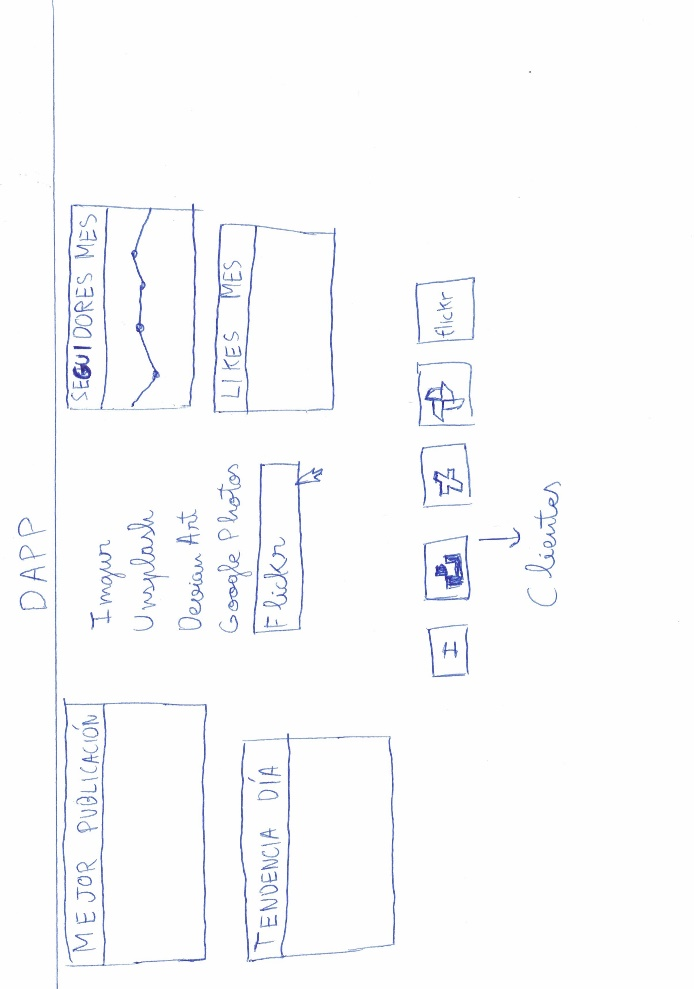 DAPP
MEJOR PUBLICACIÓN
TENDENCIA DÍA
Imgur
Unsplash
Devian Art
Google Photos
Flickr
SEGUIDORES MES
LIKES MES
I
flickr
Clientes